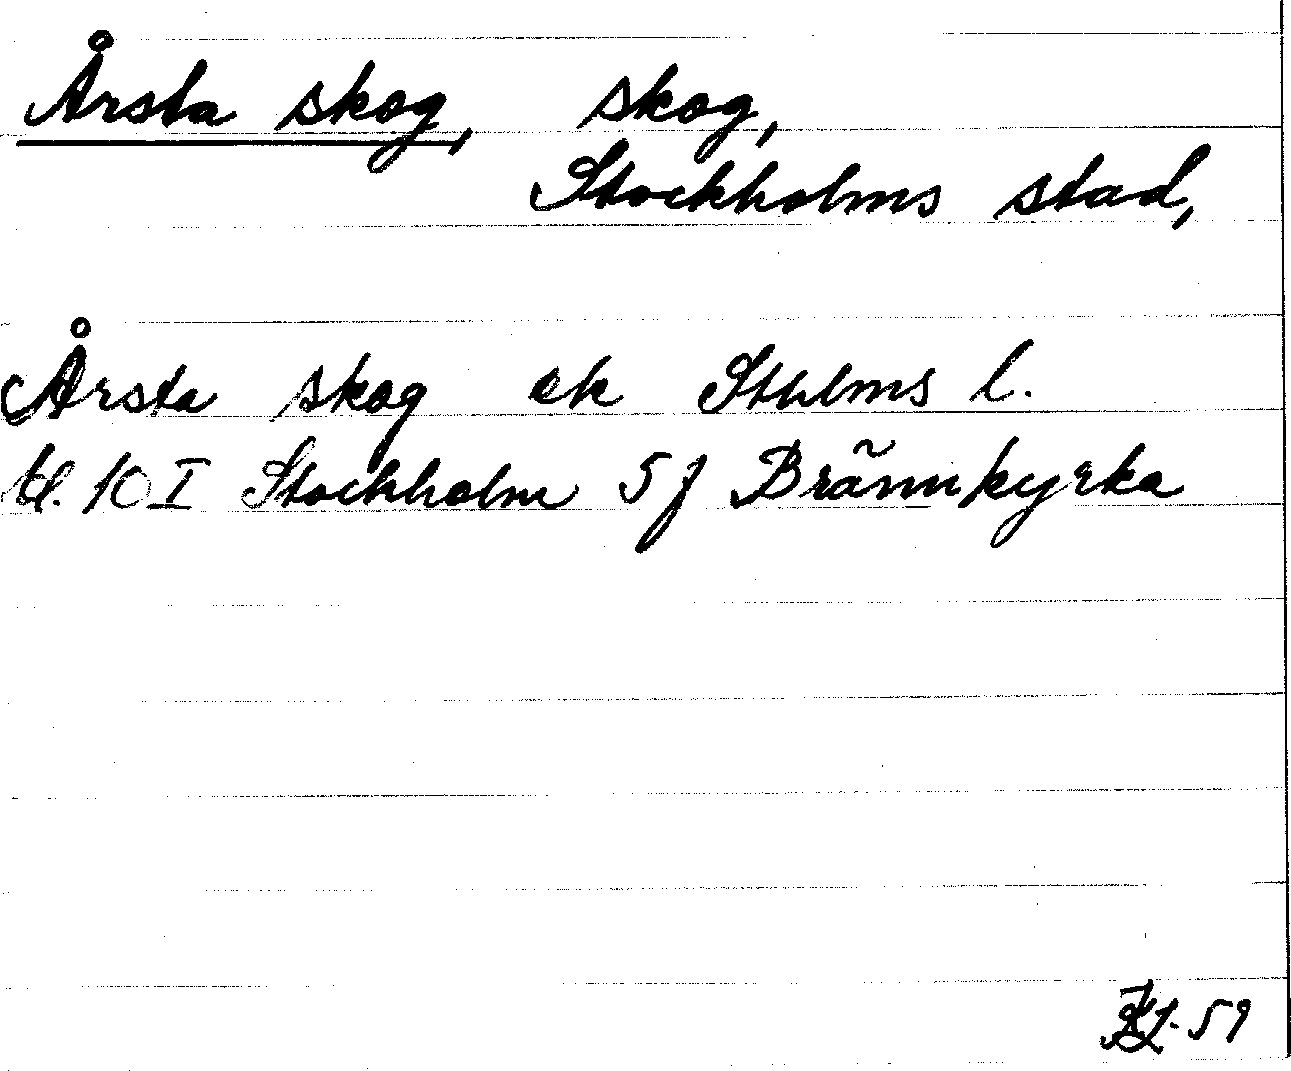 Årsta skog, skog,
Stockholms stad,
Årsta skog ek Sthlms l.
bl. 10 I Stockholm 5 f Brännkyrka
59